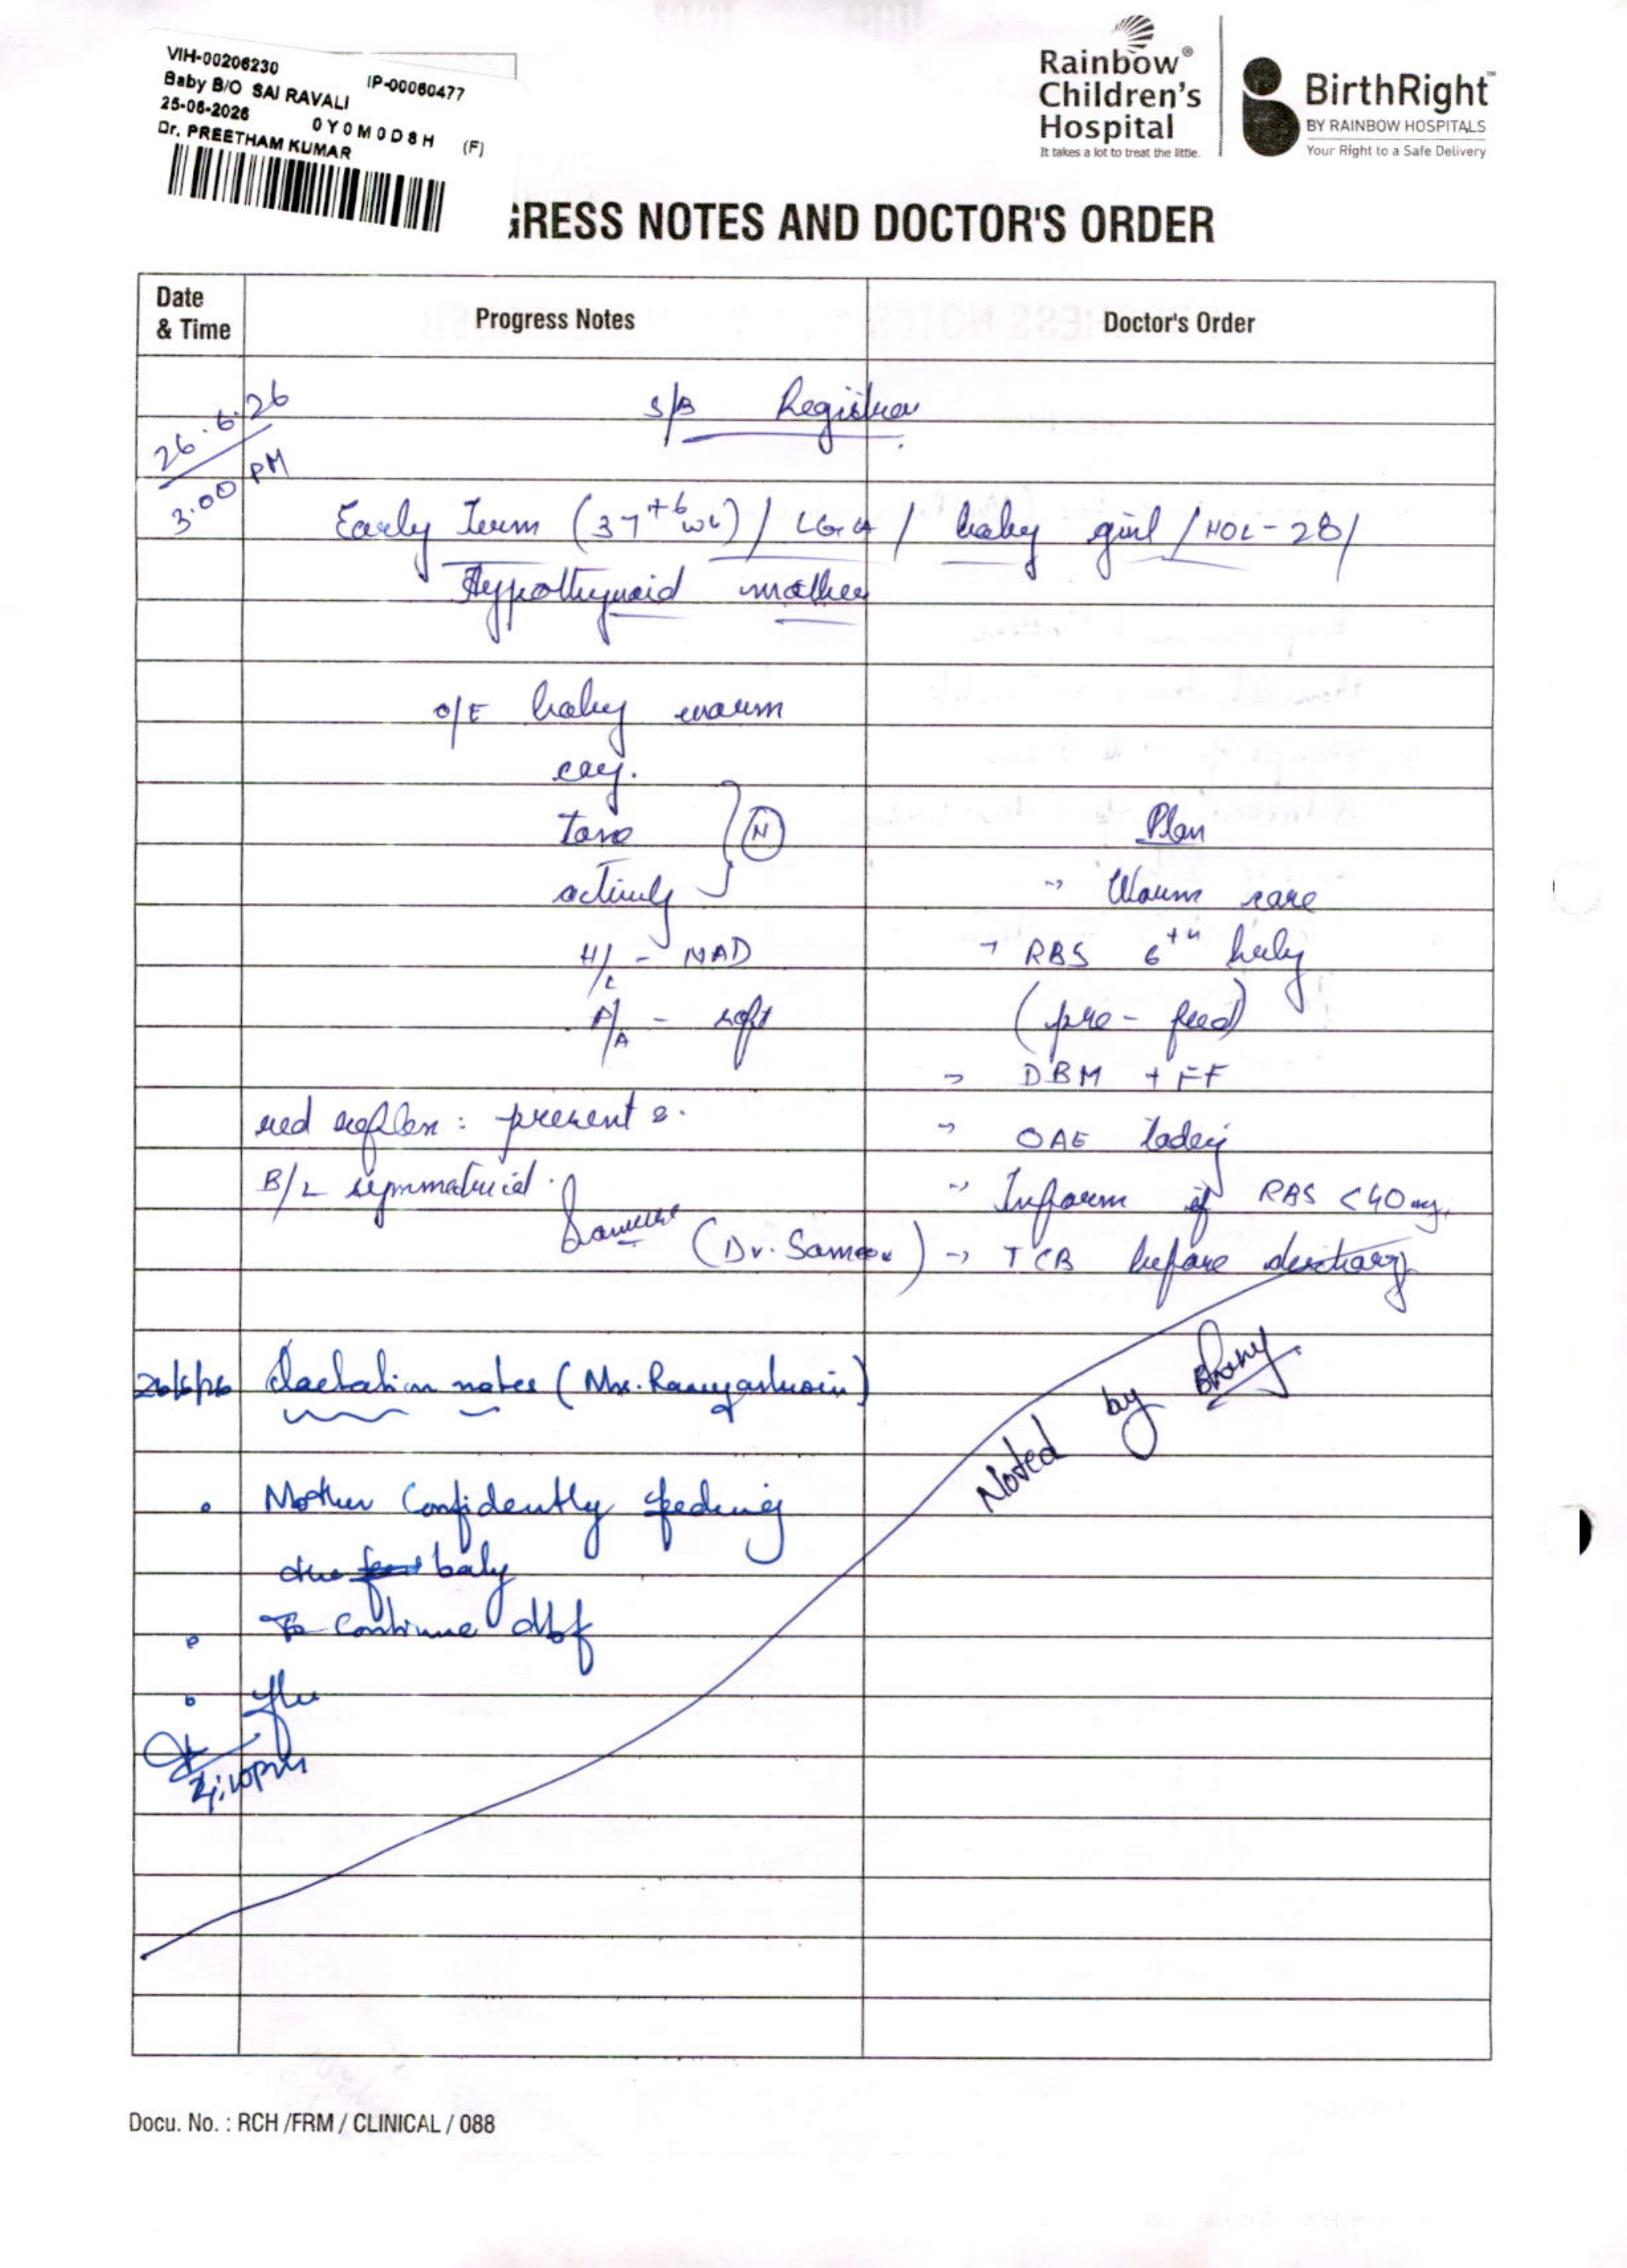 VIH-00206230 IP-00060477
Baby B/O SAI RAVALI
25-06-2026 0Y0M0D8H (F)
Dr. PREETHAM KUMAR
Rainbow®
Children's
Hospital
It takes a lot to treat the little.
BirthRight™
BY RAINBOW HOSPITALS
Your Right to a Safe Delivery
GRESS NOTES AND DOCTOR'S ORDER
Date
& Time
Progress Notes
Doctor's Order
26.6.26
3.00 PM
S/B Registrar
Early Term (37+6 wk) / LGA / baby girl / HOL-28/
Hypothyroid mother
O/E baby warm
cry.
tone N
activity
H/L - NAD
P/A - soft
red reflex : present
B/L symmetrical.
(Dr. Sameer)
Plan
-> Warm care
-> RBS 6th hrly
(pre-feed)
-> DBM + FF
-> OAE today
-> Inform if RBS <40 mg.
-> TCB before discharge
Noted by
26/6/26 Lactation notes (Mrs.
• Mother Confidently feeding
the baby
• To continue dbf
•
4:10pm
Docu. No. : RCH /FRM / CLINICAL / 088